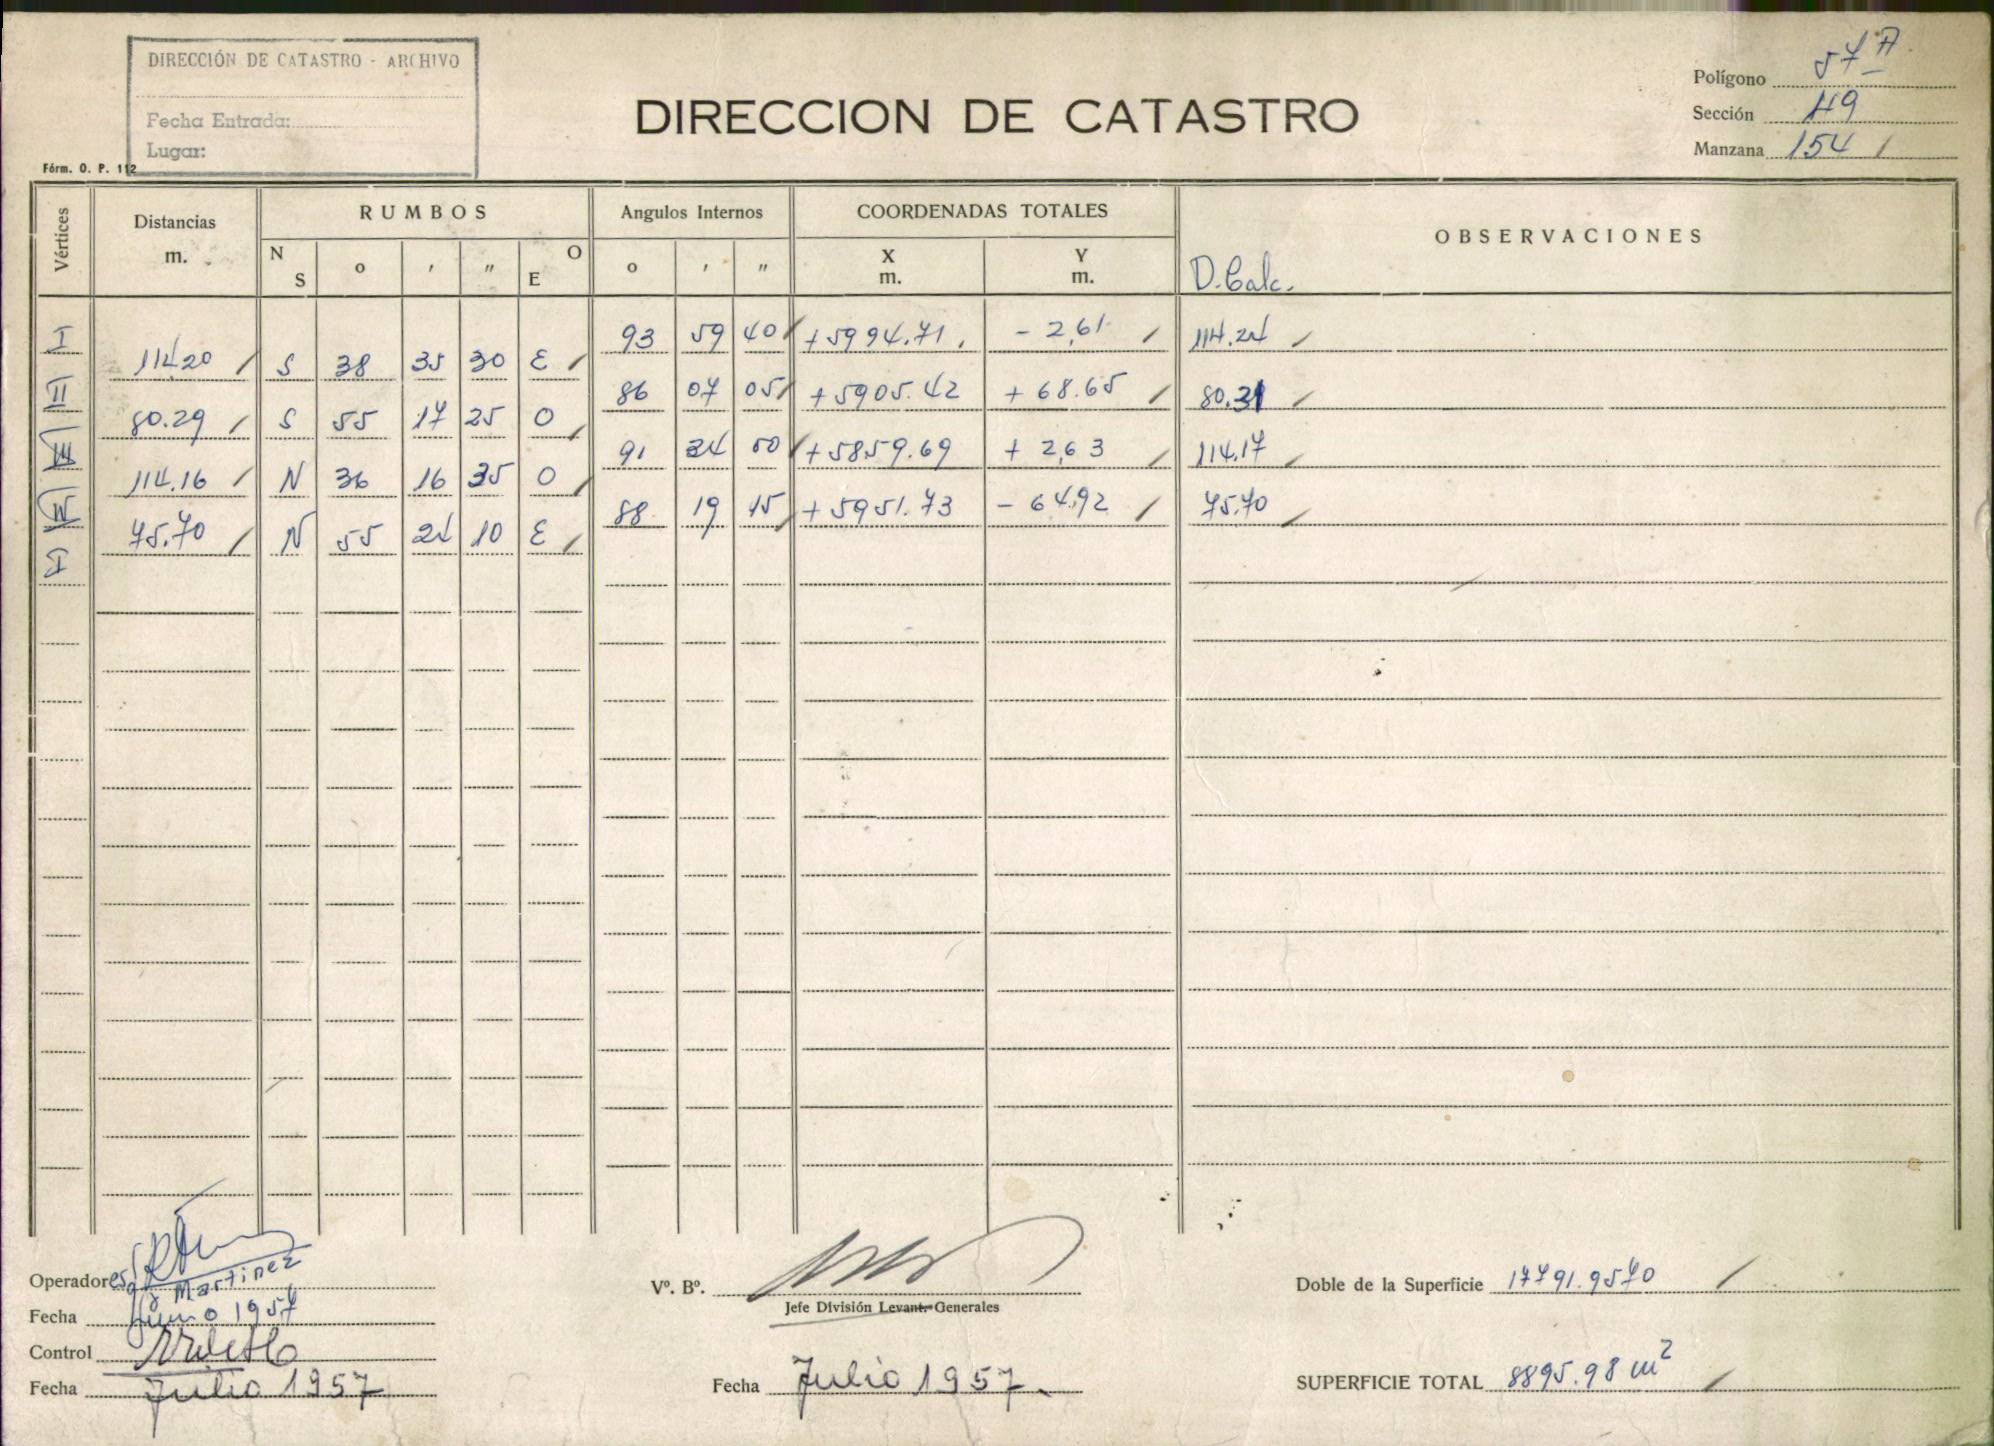 DIRECCIÓN DE CATASTRO - ARCHIVO
Fecha Entrada:
Lugar:
Fórm. O. P. 112
DIRECCION DE CATASTRO
Polígono 57 A
Sección 49
Manzana 154
Vértices Distancias m. RUMBOS Angulos Internos COORDENADAS TOTALES OBSERVACIONES
N S o ' " O E o ' " X m. Y m. D. Calc.
I 93 59 40 +5994.71 - 2,61 114.24
114.20 S 38 35 30 E
II 86 07 05 +5905.42 + 68.65 80.31
80.29 S 55 17 25 O
III 91 24 00 +5859.69 + 2,63 114.17
114.16 N 36 16 35 O
IV 88 19 15 +5951.73 - 64,92 75.70
75.70 N 55 24 10 E
I
Operadores
y Martinez
Fecha Junio 1957
Control
Fecha Julio 1957
Vº. Bº.
Jefe División Levant. Generales
Fecha Julio 1957.
Doble de la Superficie 17791.9570
SUPERFICIE TOTAL 8895.98 m²